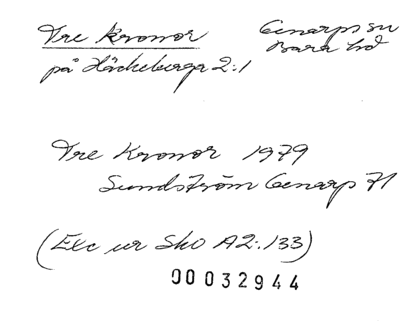 Tre Kronor
Genarps sn
Bara hd
på Häckeberga 2:1
Tre Kronor 1979
Sundström Genarp 71
(Exc ur Sko A2:133)
00032944